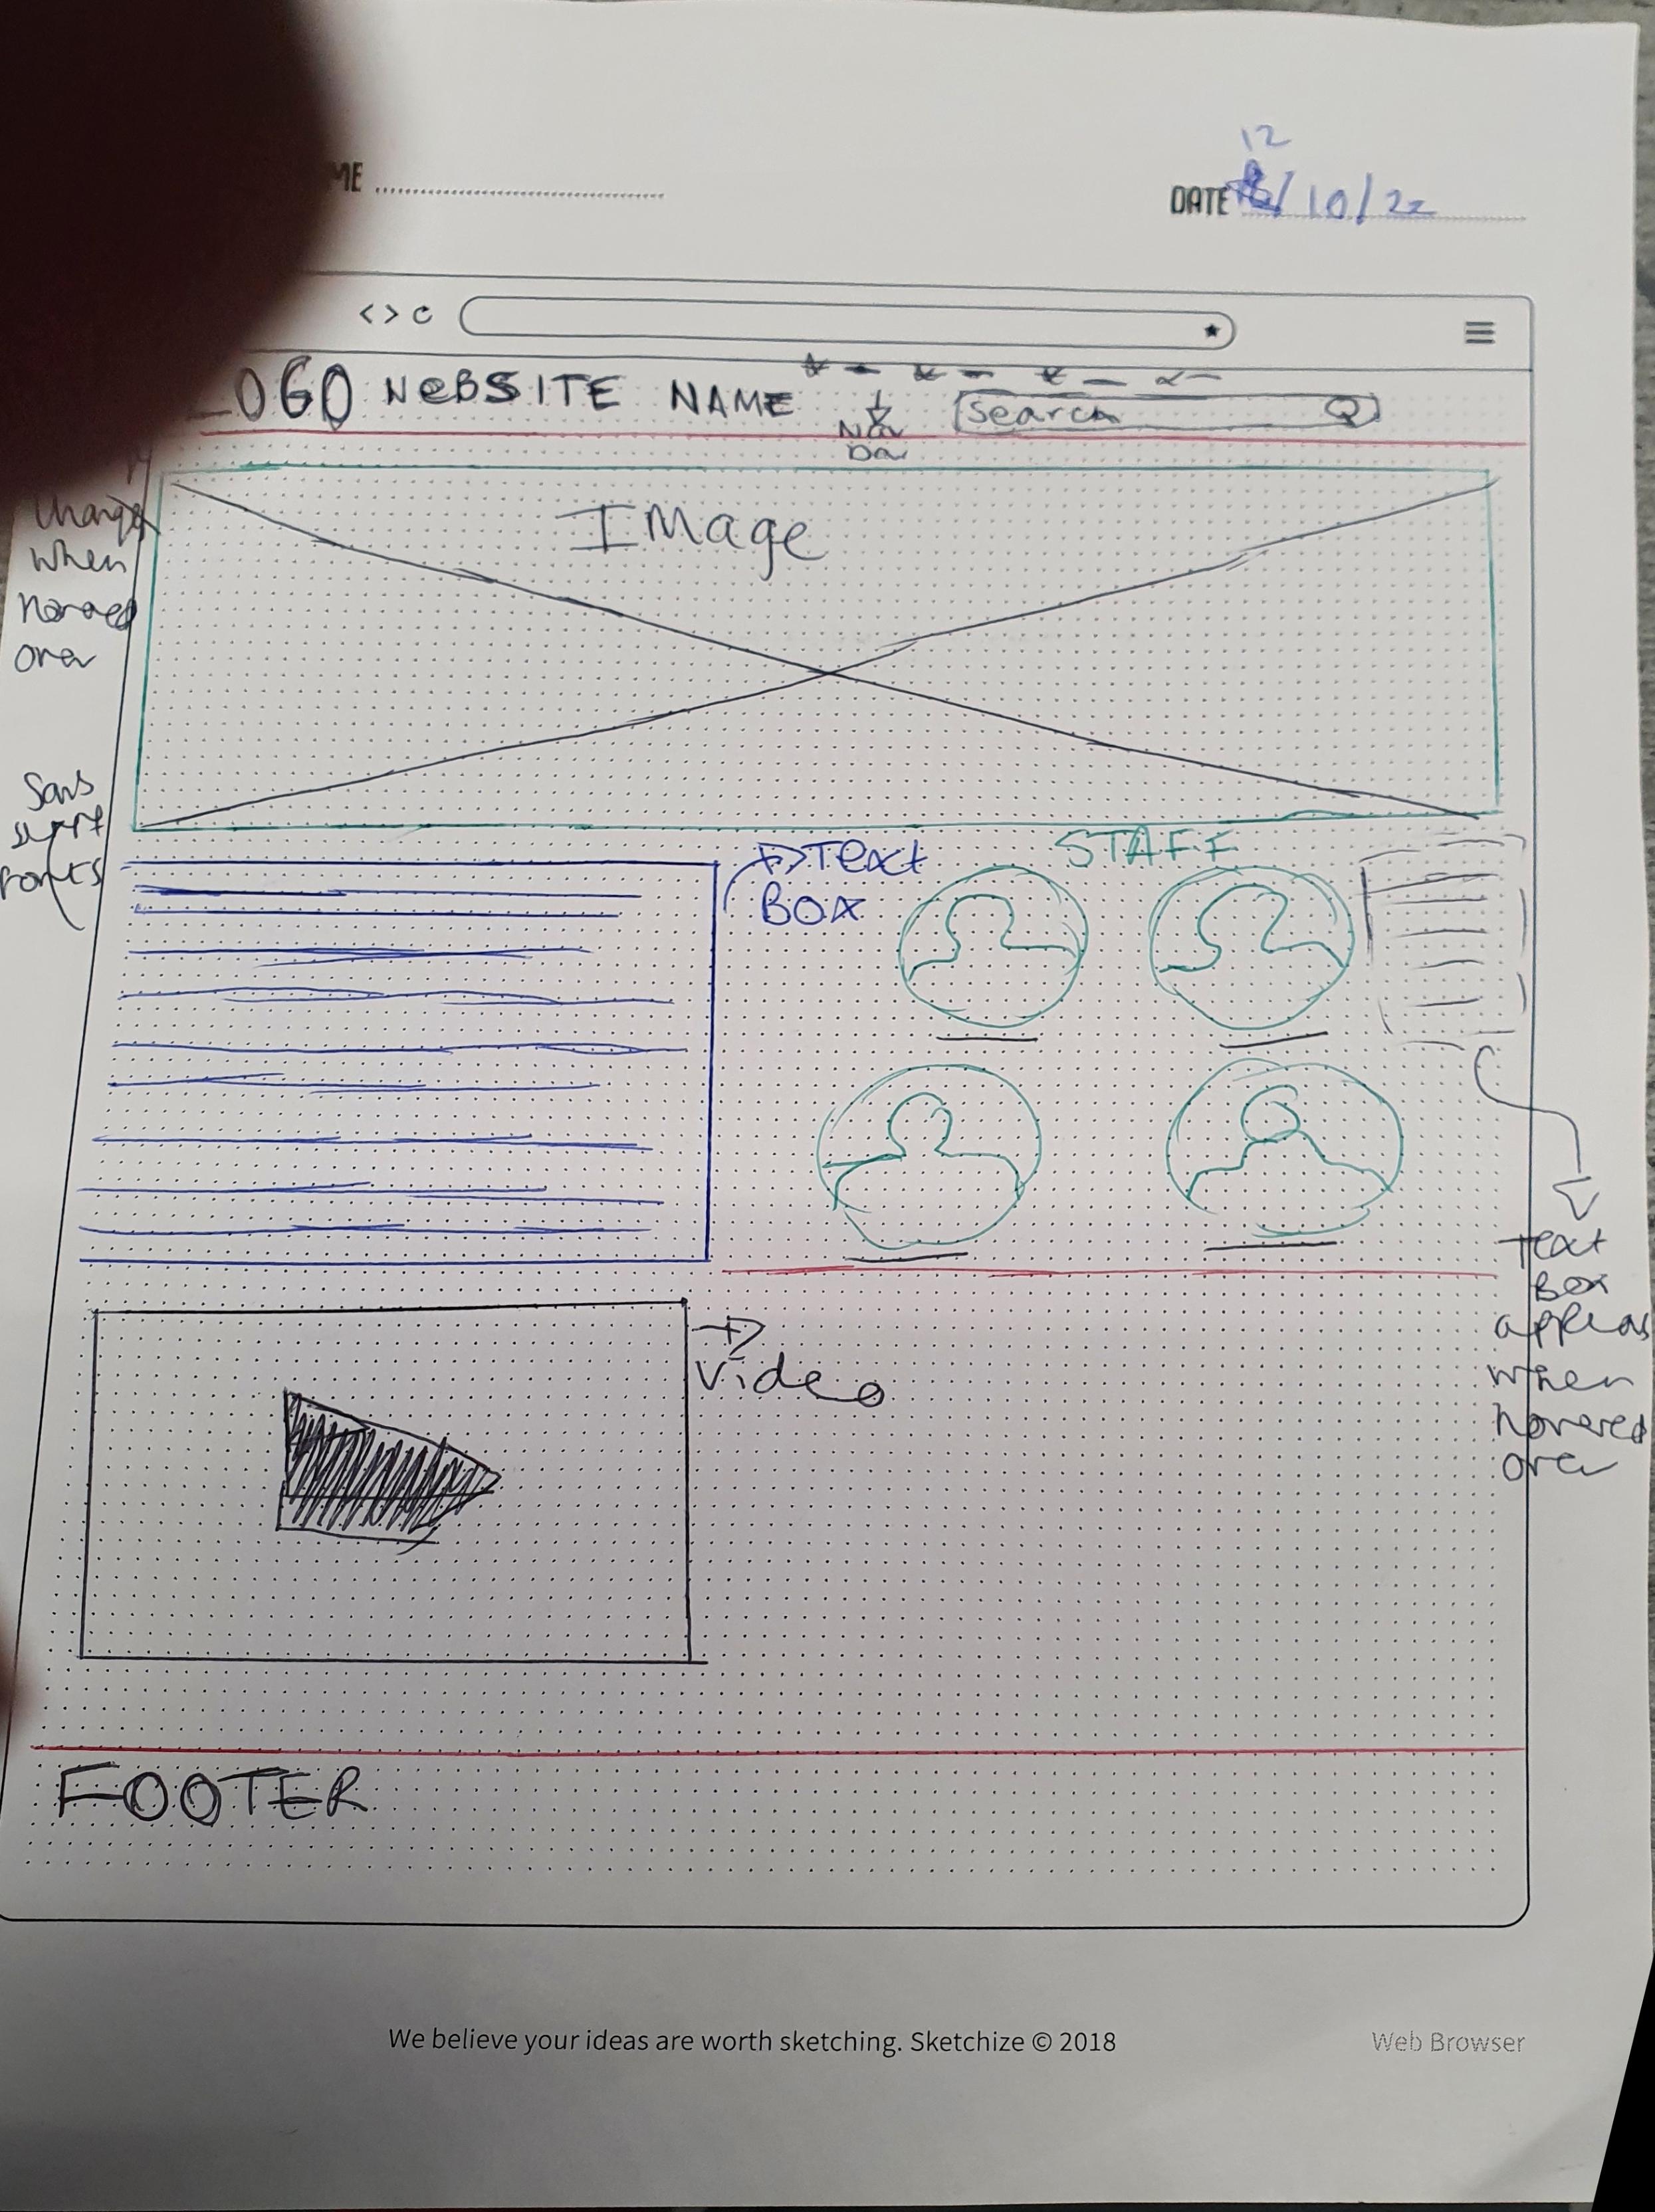 ME
DATE 12/10/22
LOGO WEBSITE NAME
Search
Nav
Bar
Image
Changes
when
hovered
over
Sans
serif
fonts
Text
BOX
STAFF
Text
Box
appears
when
hovered
over
Video
FOOTER
We believe your ideas are worth sketching. Sketchize © 2018
Web Browser